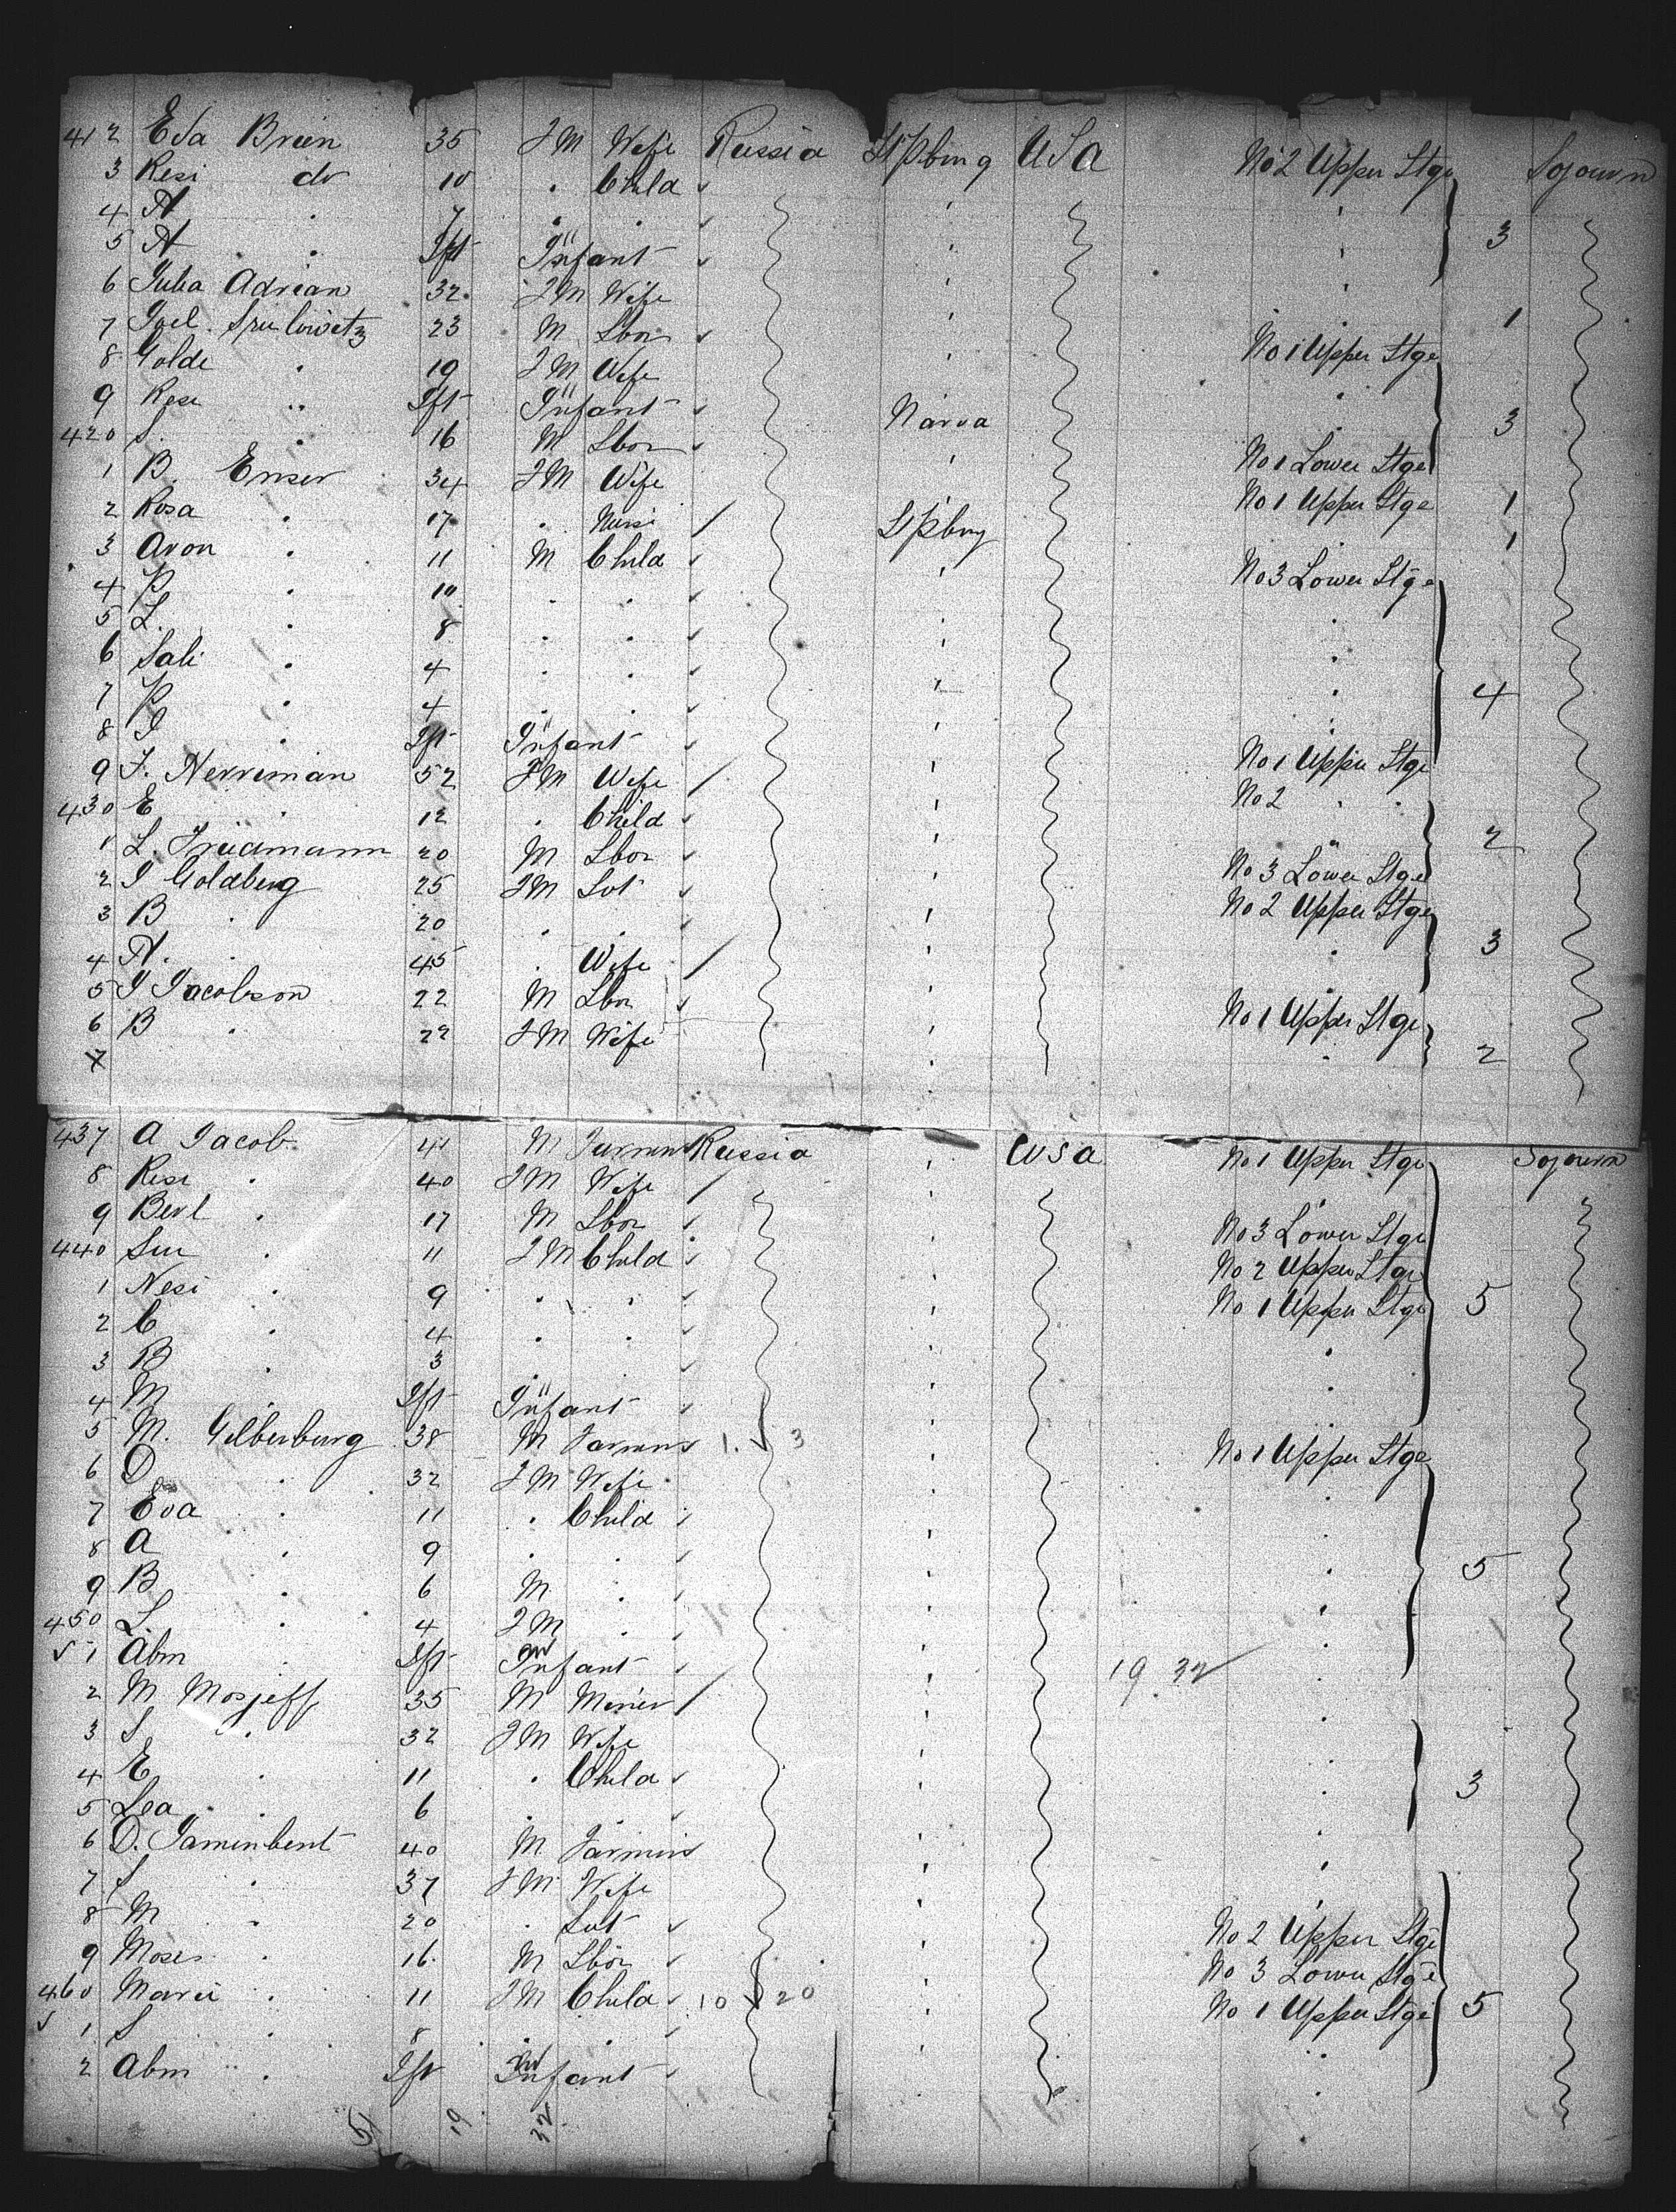 412 Eda Brein 35 FM Wife Russia St Pbung USa No 2 Upper Stge Sojourn
3 Resi do 10 . Child
4 A . 7 . .
5 A . Ift Infant 3
6 Julia Adrian 32 FM Wife 1
7 Joel 23 M Lbor No 1 Upper Stge
8 Golde . 19 FM Wife
9 Resi " Ift Infant Narva 3
420 S. . 16 M Lbor No 1 Lower Stge
1 B. Enser 34 FM Wife No 1 Upper Stge 1
2 Rosa . 17 . St Pbung 1
3 Aron . 11 M Child No 3 Lower Stge
4 P . 10 . .
5 L. . 8 . .
6 Sali . 4 . .
7 P . 4 . . 4
8 I . Ift Infant No 1 Upper Stge
9 F. Herriman 52 FM Wife No 2 . .
430 E . 12 . Child 2
1 L. Friedmann 20 M Lbor No 3 Lower Stge
2 I Goldberg 25 FM Svt No 2 Upper Stge
3 B . 20 . . 3
4 A. . 45 . Wife
5 I Jacobson 22 M Lbor No 1 Upper Stge
6 B . 22 FM Wife 2
7
437 A Jacob 41 M Russia USa No 1 Upper Stge Sojourn
8 Resi . 40 FM Wife
9 Berl . 17 M Lbor No 3 Lower Stge
440 . 11 FM Child No 2 Upper Stge
1 Nesi . 9 . . No 1 Upper Stge 5
2 C . 4 . .
3 B . 3 .
4 M . Ift Infant
5 M. Gilberburg 38 M 1. 3 No 1 Upper Stge
6 D . 32 FM Wife
7 Eva . 11 . Child
8 A . 9 . . 5
9 B . 6 M .
450 L . 4 FM .
51 Abm . Ift Infant 19 32
2 M Mosjeff 35 M
3 S . 32 FM Wife
4 E . 11 . Child 3
5 Lea . 6 .
6 D. Jaminbent 40 M
7 S . 37 FM Wife
8 M . 20 . Svt No 2 Upper Stge
9 Moses . 16 M Lbor No 3 Lower Stge
460 Marie . 11 FM Child 10 20 No 1 Upper Stge 5
1 S . 8 . .
2 Abm . Ift Infant
51 19 32